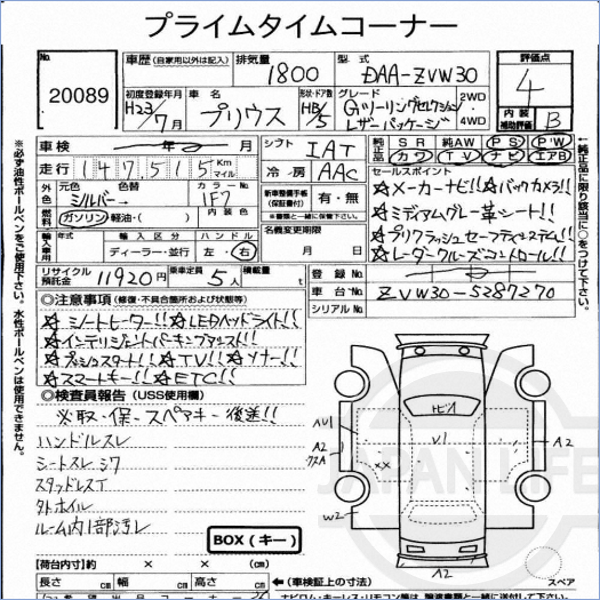 プライムタイムコーナー
No.
20089
車歴 (自家用以外は記入)
排気量
1800
型式
DAA-ZVW30
評価点
4
初度登録年月
H23/7月
車名
プリウス
形状・ドア数
HB/5
グレード
Gツーリングセレクション
レザーパッケージ
2WD
4WD
内装
補助評価
B
車検
年 月
シフト
IAT
純正品
SR 純AW PS PW
カワ TV ナビ エアB
走行
147,515 Km
マイル
冷房
AAC
セールスポイント
☆メーカーナビ!!☆バックカメラ!!
☆ミディアムグレー革シート!!
☆プリクラッシュセーフティシステム!!
☆レーダークルーズコントロール!!
外色
元色
シルバー→
色替
カラーNo
1F7
新車整備手帳
(保証書付)
有・無
※書類と一緒に保管して下さい。
燃料
ガソリン・軽油・( )
内装色
名義変更期限
月 日
輸入車用
年式
輸入区分
ハンドル
ディーラー・並行
左・右
リサイクル預託金
11920円
乗車定員
5人
積載量
t
登録No.
車台No.
ZVW30-5287270
シリアルNo.
◎注意事項 (修復・不具合箇所および状態等)
☆シートヒーター!!☆LEDヘッドライト!!
☆インテリジェントパーキングアシスト!!
☆プッシュスタート!!☆TV!!☆ツナー!!
☆スマートキー!!☆ETC!!
◎検査員報告 (USS使用欄)
※取・保・スペアキー 後送!!
ハンドルスレ
シートスレ シワ
スタッドレスT
外ホイル
ルーム内1部汚レ
BOX (キー)
AU1
A2
W2
V1
××
A2
A2
スペア
【荷台内寸】約 × × (cm)
長さ cm 幅 cm 高さ cm
←(車検証上の寸法)
※必ず油性ボールペンをご使用下さい。水性ボールペンは使用できません。
←純正品に限り該当に○をつけて下さい。
JAPAN LIFE